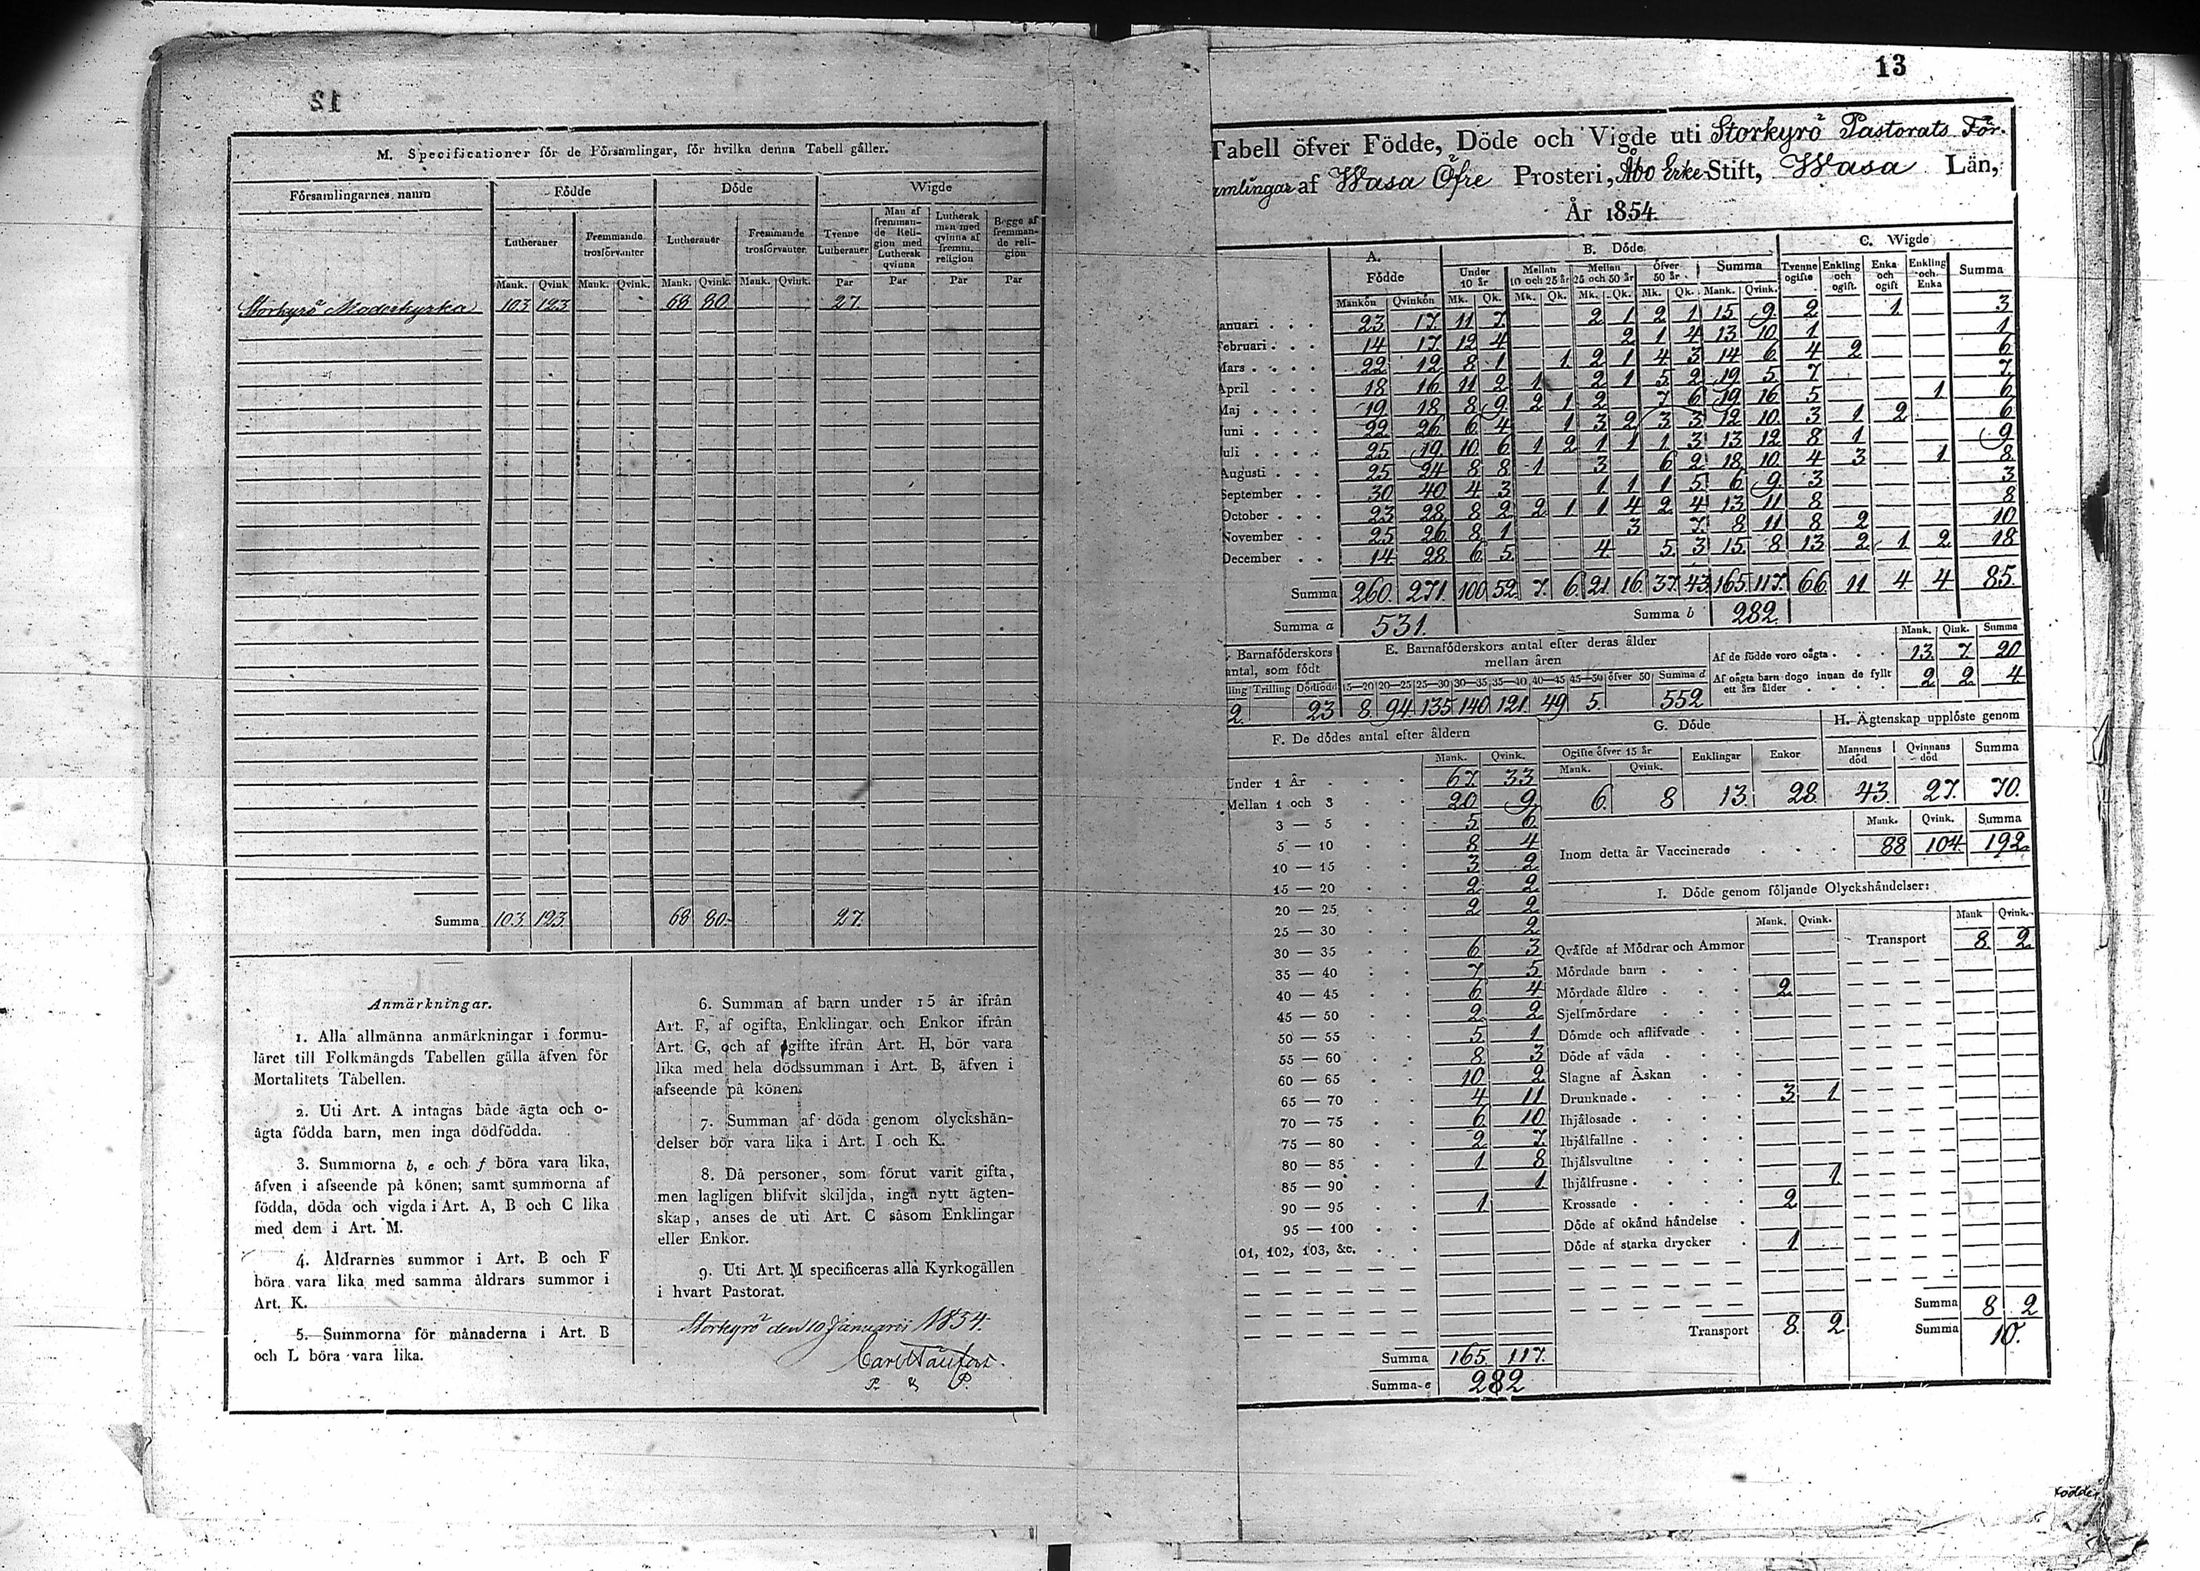 12
M. Specificationer för de Församlingar, för hvilka denna Tabell gäller.
Församlingarnes namn Födde Döde Wigde
Lutheraner Fremmande trosförvanter Lutheraner Fremmande trosförvanter Tvenne Lutheraner Man af fremmande Religion med Luthersk qvinna Luthersk man med qvinna af fremm. religion Begge af fremmande religion
Mank. Qvink Mank. Qvink. Mank. Qvink. Mank. Qvink. Par Par Par Par
Storkyrö Moderkyrka 103 123 68 80 27.
Summa 103 123 68 80 27.
Anmärkningar.
1. Alla allmänna anmärkningar i formu-
läret till Folkmängds Tabellen gälla äfven för
Mortalitets Tabellen.
2. Uti Art. A intagas både ägta och o-
ägta födda barn, men inga dödfödda.
3. Summorna b, e och f böra vara lika,
äfven i afseende på könen; samt summorna af
födda, döda och vigda i Art. A, B och C lika
med dem i Art. M.
4. Åldrarnes summor i Art. B och F
böra vara lika med samma åldrars summor i
Art. K.
5. Summorna för månaderna i Art. B
och L böra vara lika.
6. Summan af barn under 15 år ifrån
Art. F, af ogifta, Enklingar och Enkor ifrån
Art. G, och af gifte ifrån Art. H, bör vara
lika med hela dödssumman i Art. B, äfven i
afseende på könen.
7. Summan af döda genom olyckshän-
delser bör vara lika i Art. I och K.
8. Då personer, som förut varit gifta,
men lagligen blifvit skiljda, ingå nytt ägten-
skap, anses de uti Art. C såsom Enklingar
eller Enkor.
9. Uti Art. M specificeras alla Kyrkogällen
i hvart Pastorat.
Storkyrö den 10 Januarii 1854.
P. & P.
13
Tabell öfver Födde, Döde och Vigde uti Storkyrö Pastorats För-
amlingar af Wasa Öfre Prosteri, Åbo Erke-Stift, Wasa Län,
År 1854.
A. Födde B. Döde C. Wigde
Under 10 år Mellan 10 och 25 år Mellan 25 och 50 år Öfver 50 år Summa Tvenne ogifte Enkling och ogift. Enka och ogift Enkling och Enka Summa
Mankön Qvinkön Mk. Qk. Mk. Qk. Mk. Qk. Mk. Qk. Mank. Qvink.
anuari 23 17 11 7 2 1 2 1 15 9 2 1 3
ebruari 14 17 12 4 2 1 4 13 10 1 1
Mars 22 12 8 1 1 2 1 4 3 14 6 4 2 6
April 18 16 11 2 1 2 1 5 2 19 5 7 7
Maj 19 18 8 9 2 1 2 7 6 19 16 5 1 6
uni 22 26 6 4 1 3 2 3 3 12 10 3 1 2 6
uli 25 19 10 6 1 2 1 1 1 3 13 12 8 1 9
Augusti 25 24 8 8 1 3 6 2 18 10 4 3 1 8
September 30 40 4 3 1 1 1 5 6 9 3 3
October 23 28 8 2 2 1 1 4 2 4 13 11 8 8
November 25 26 8 1 3 7 8 11 8 2 10
December 14 28 6 5 4 5 3 15 8 13 2 1 2 18
Summa 260. 271. 100 52 7. 6. 21. 16. 37. 43 165. 117. 66 11 4 4 85.
Summa a 531. Summa b 282.
Barnaföderskors
antal, som födt
E. Barnaföderskors antal efter deras ålder
mellan åren
Mank. Qink. Summa
Af de födde voro oägta 13 7 20
Af oägta barn dogo innan de fyllt
ett års ålder 2 2 4
lling Trilling Dödfödd 15—20 20—25 25—30 30—35 35—40 40—45 45—50 öfver 50 Summa d
2 23 8 94 135 140 121 49 5 552
F. De dödes antal efter åldern
Mank. Qvink.
Under 1 År 67. 33
Mellan 1 och 3 20 9
3 — 5 5 6
5 — 10 8 4
10 — 15 3 2
15 — 20 2 2
20 — 25 2 2
25 — 30 2
30 — 35 6 3
35 — 40 7 5
40 — 45 6 4
45 — 50 2 2
50 — 55 5 1
55 — 60 8 3
60 — 65 10 2
65 — 70 4 11
70 — 75 6 10
75 — 80 2 7
80 — 85 1 8
85 — 90 1
90 — 95 1
95 — 100
01, 102, 103, &c.
Summa 165 117.
Summa e 282
G. Döde
Ogifte öfver 15 år Enklingar Enkor
Mank. Qvink.
6 8 13 28
H. Ägtenskap upplöste genom
Mannens död Qvinnans död Summa
43 27 70.
Mank. Qvink. Summa
Inom detta år Vaccinerade 88 104 192
I. Döde genom följande Olyckshändelser:
Mank. Qvink. Mank Qvink.
Qväfde af Mödrar och Ammor
Mördade barn
Mördade äldre 2
Sjelfmördare
Dömde och aflifvade
Döde af våda
Slagne af Åskan
Drunknade 3 1
Ihjälosade
Ihjälfallne
Ihjälsvultne
Ihjälfrusne 1
Krossade 2
Döde af okänd händelse
Döde af starka drycker 1
Transport 8. 2
Transport 8 2
Summa 8 2
Summa 10.